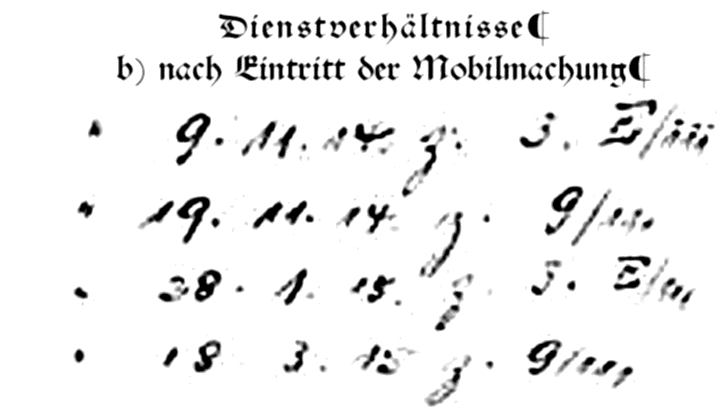 Dienstverhältnisse
b) nach Eintritt der Mobilmachung
" 9. 11. 14. z. 3. E/iii
" 19. 11. 14 z. 9/111.
" 28. 1. 15. z. 3. E/111
" 18 3. 15 z. 9/111,